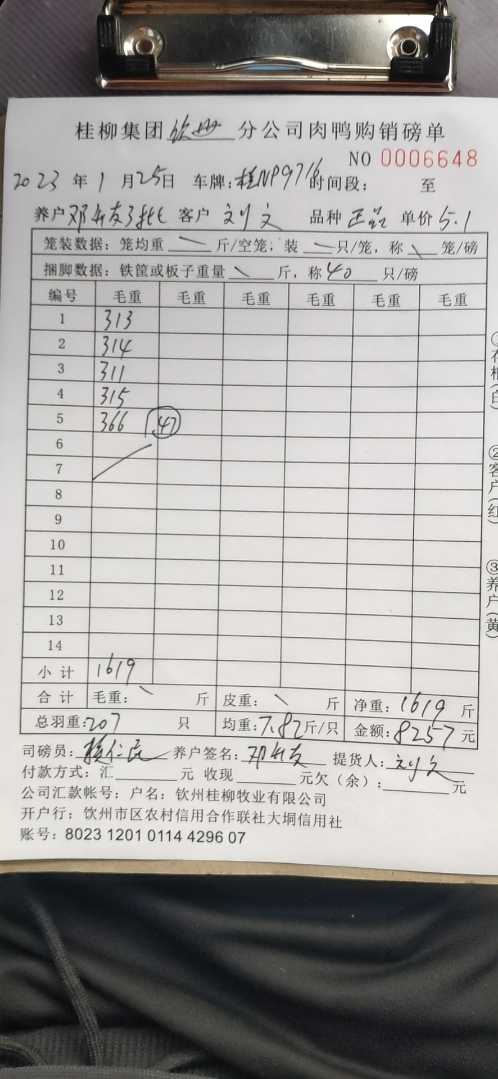 桂柳集团 钦州 分公司肉鸭购销磅单
NO 0006648
2023 年 1 月 25 日 车牌:桂NP9716 时间段: 至
养户 邓 友3批 客户 刘文 品种 正品 单价 5.1
笼装数据:笼均重 斤/空笼,装 只/笼,称 笼/磅
捆脚数据:铁筐或板子重量 斤,称 40 只/磅
编号 毛重 毛重 毛重 毛重 毛重 毛重
1 313
2 314
3 311
4 315
5 366 47
6
7
8
9
10
11
12
13
14
小计 1619
合计 毛重: 斤 皮重: 斤 净重:1619 斤
总羽重:207 只 均重:7.82 斤/只 金额:8257 元
司磅员: 仁 养户签名:邓 友 提货人:刘文
付款方式:汇 元 收现 元欠(余): 元
公司汇款帐号:户名:钦州桂柳牧业有限公司
开户行:钦州市区农村信用合作联社大垌信用社
账号:8023 1201 0114 4296 07
②客户(红)
③养户(黄)